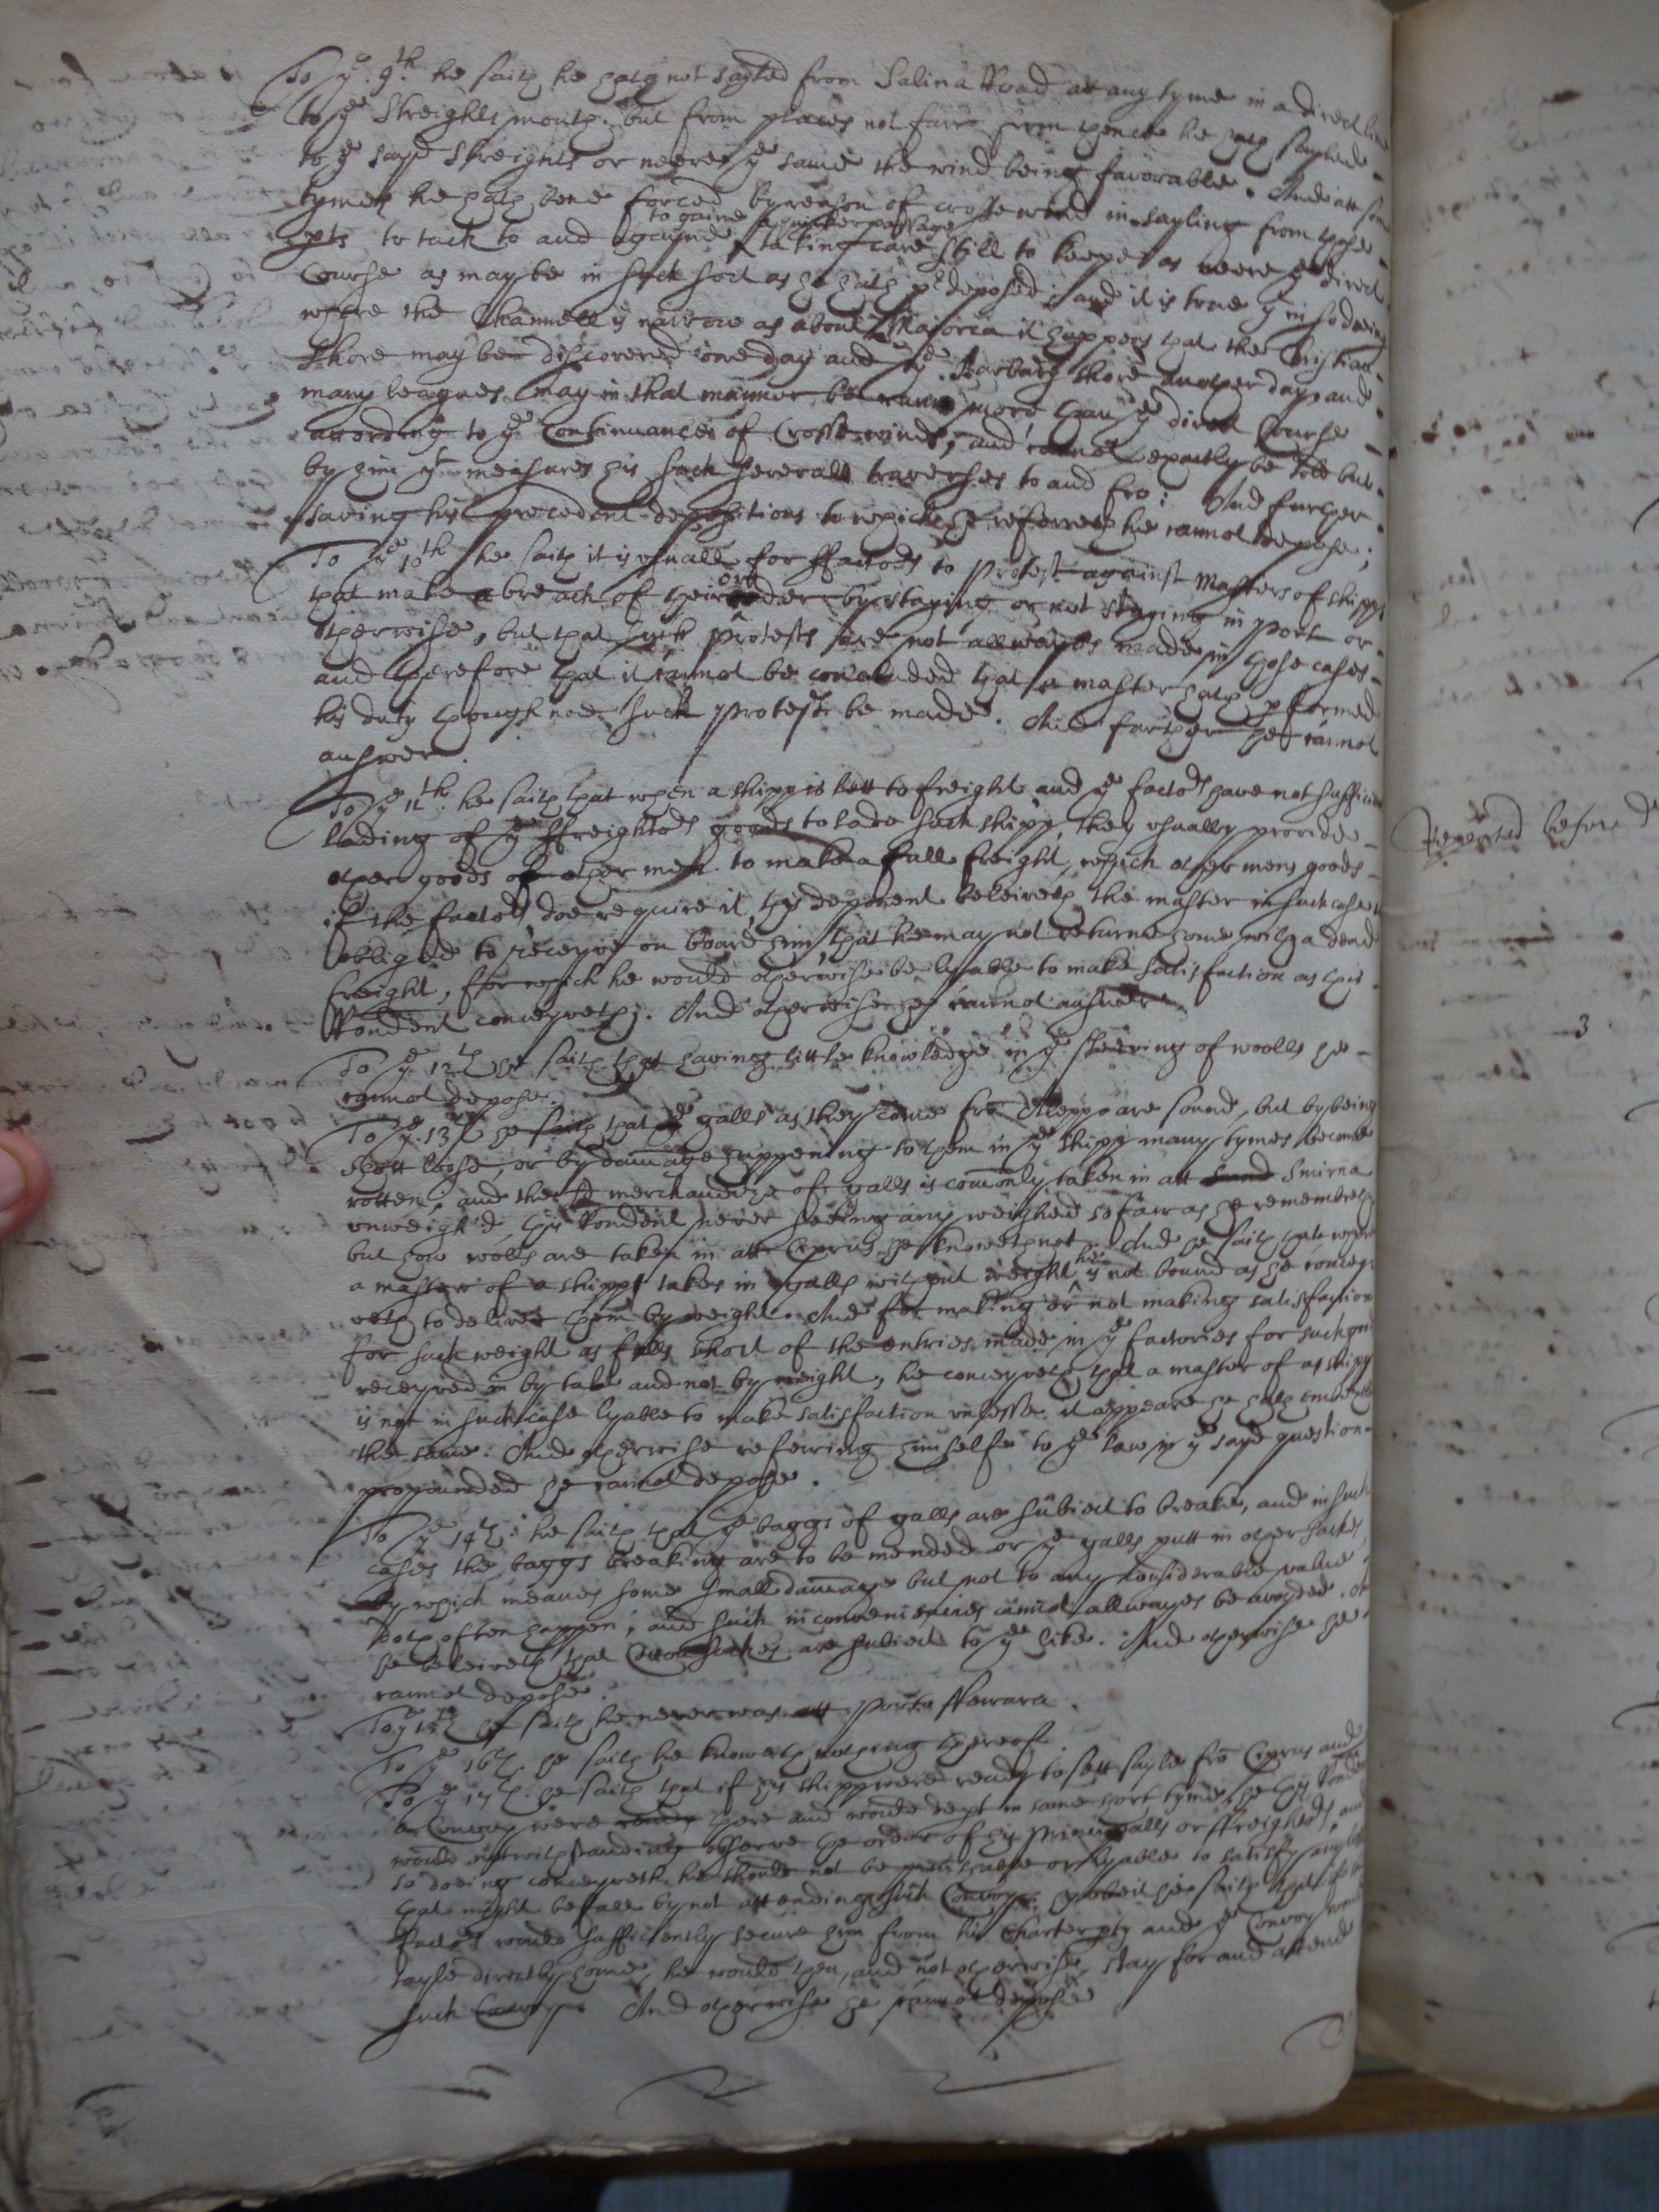 To ye. 9th. he saith he hath not sayled from Salina Road at any tyme in a direct line
to ye Streights mouth. but from places not farre from thence he hath sayled
to ye sayd Streights or neere ye same the wind being favorable. And att some
tymes he hath bene forced by reason of crosse wind in sayling from those
to gaine a quicker passage
pts to tack to and againe taking care still to keepe as neere ye direct
Course as may be in such sort as he hath predeposed: and it is true yt in so doeing
where the Channell is narrow as about Majorca it happens that the Cristian
shore may be discovered one day and ye Barbary shore another day, and
many leagues may in that manner be runne more than ye direct Course
according to ye Continuance of Crosse winds, and cannot exactly be told but
by him yt measures his such severall traverses to and fro: And further
saving his precedent depositions to which he referreth he cannot depose;
To ye 10th he saith it is usuall for ffactors to Protest against Masters of shipps
that make a breach of their order by staying or not staying in port or
otherwise, but that such protests are not allwayes made in those cases
and therefore that it cannot be concluded that a master hath pformed
his duty though noe such Protest be made. And farther he cannot
answer.
To ye 11th. he saith that when a shipp is lett to freight and ye factors have not sufficient
lading of ye ffreighters goods to lade such shipp, they usually provide
other goods of other men to make a full freight, which other mens goods
if the factors doe require it, this deponent beleiveth the master in such case is
obliged to receyve on board him, that he may not returne home with a dead
freight, for which he would otherwise be lyable to make satisfaction as this
Rondent conceyveth. And otherwise he cannot answer
To ye 12th he saith that having little knowledge in ye steeving of woolls he
cannot depose.
To ye. 13th he saith that ye galls as they come fro Aleppo are sound, but by being
kept loose, or by damage happening to them in ye shipp many tymes become
rotten, and the sd merchandize of galls is comonly taken in att Smirna
unweigh'd, this Rondent never seeing any weighed so farr as he remembreth
but how wolls are taken in att Ciprus he knoweth not. And he saith that where
a master of a shipp takes in galls without weight he is not bound as he concey
veth to deliver them by weight. And for making or not making satisfaction
for such weight as falls short of the entries made in ye factories for such goods
receyved in by tale and not by weight, he conceyveth that a master of a shipp
is not in such case lyable to make satisfaction unlesse it appeare he hath embezled
the same. And otherwise referring himselfe to ye law in ye sayd question
propounded he cannot depose.
To ye 14th: he saith that ye baggs of galls are subiect to breake, and in such
cases the baggs breaking are to be mended or ye galls putt in other sackes
by which meanes some small damage but not to any considerable value
doth often happen, and such inconveniencies cannot allwayes be avoyded. And
he beleiveth that Cotton sackes are subiect to ye like. And otherwise he
cannot depose.
To ye 15th he saith he never was att Porto ffewara.
To ye 16th. he saith he knoweth nothing thereof.
To ye 17th. he saith that if his shipp were ready to sett sayle fro Ciprus and
a Convoy were there and would dept in some short tyme, he this Rondent
would notwithstanding observe the order of his Principalls or ffreighters, and
so doeing conceyveth he should not be lyable to satisfy any losse
that might befall by not attending such Convoy: howbeit he saith that if the
factors would sufficiently secure him from his Charter pty and ye Convoy would
sayle directly home, he would then, and not otherwise, stay for and attend
such Convoy. And otherwise he cannot depose
Repeated before D